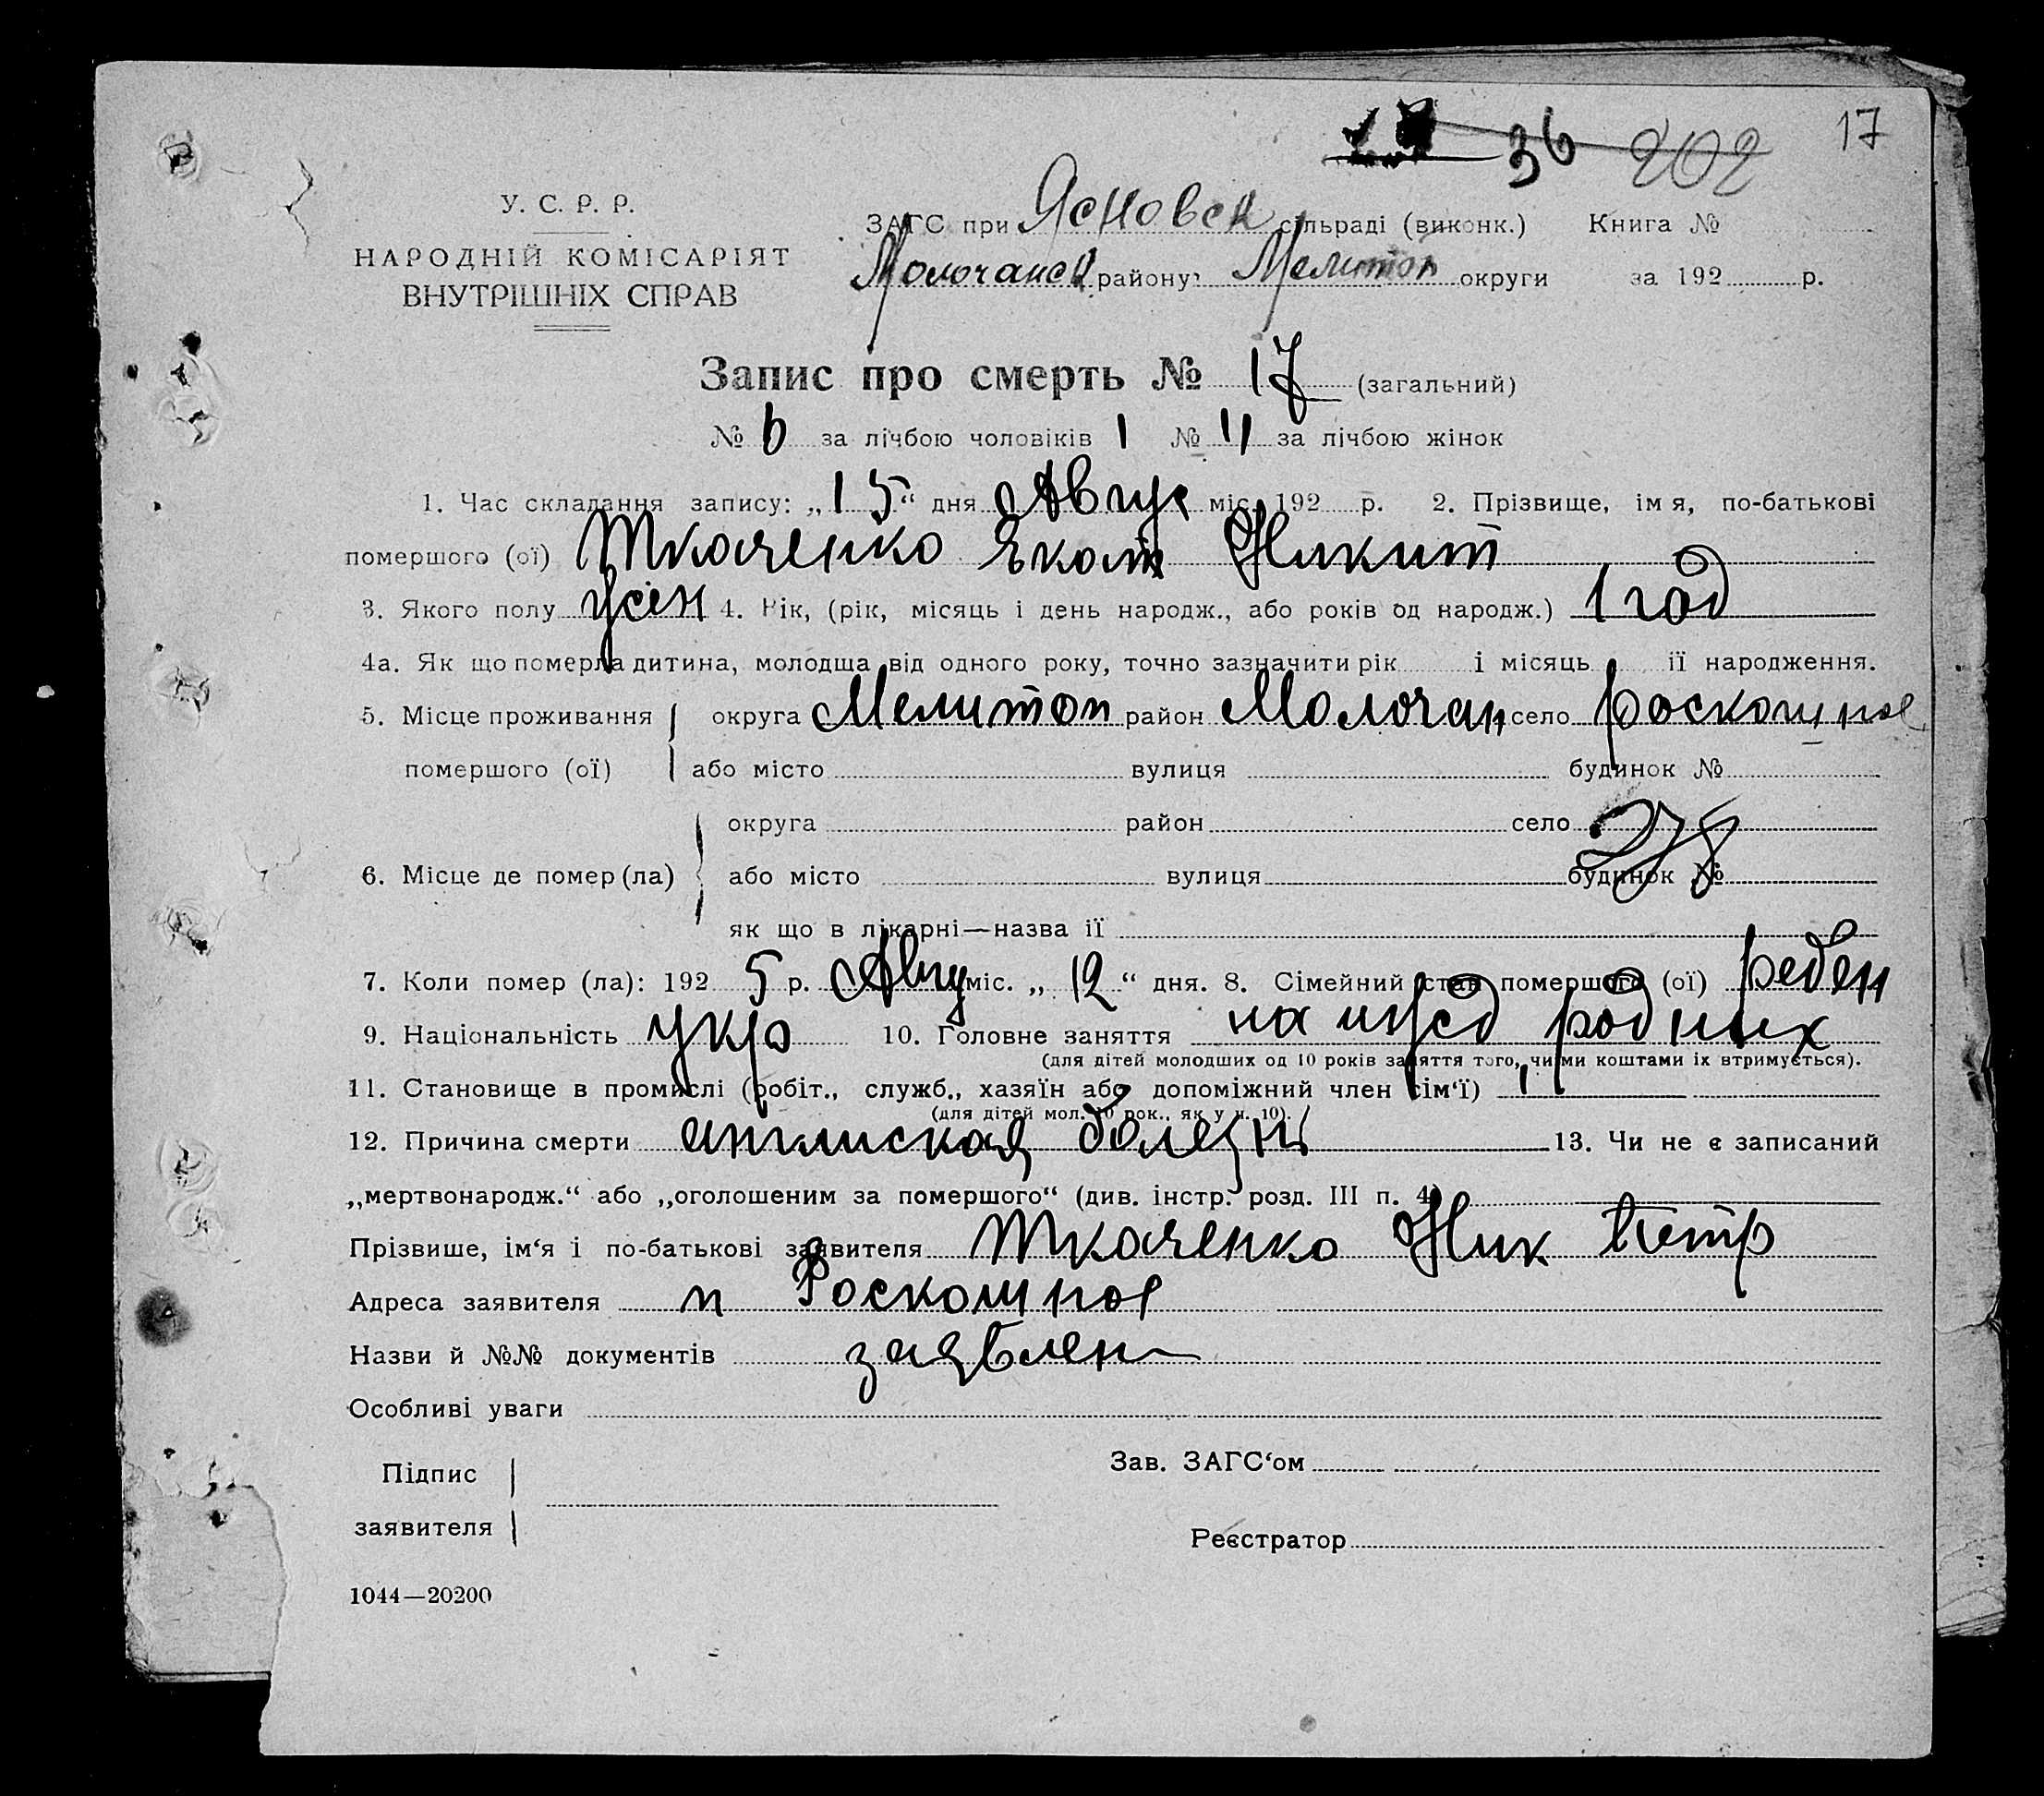 36 202 17
У. С. Р. Р.
НАРОДНІЙ КОМІСАРІЯТ
ВНУТРІШНІХ СПРАВ
ЗАГС при Ясновск сільраді (виконк.) Книга №
Молочанск району Мелитоп округи за 192 р.
Запис про смерть № 17 (загальний)
№ 6 за лічбою чоловіків 1 № 11 за лічбою жінок
1. Час складання запису: „15“ дня Авгус міс. 192 р. 2. Прізвище, ім я, по-батькові
помершого (ої) Ткаченко Екат Никит
3. Якого полу жен 4. Вік, (рік, місяць і день народж., або років од народж.) 1 год
4а. Як що померла дитина, молодща від одного року, точно зазначити рік і місяць її народження.
5. Місце проживання округа Мелитоп район Молочан село Роскошное
помершого (ої) або місто вулиця будинок №
округа район село
6. Місце де помер (ла) або місто вулиця будинок №
як що в лікарні—назва її
7. Коли помер (ла): 192 5 р. Авгу міс. „12“ дня. 8. Сімейний стан помершого (ої) ребен
9. Національність укр 10. Головне заняття на ижд родных
(для дітей молодших од 10 років заняття того, чиїми коштами їх втримується).
11. Становище в промислі (робіт., служб., хазяїн або допоміжний член сім‘ї)
(для дітей мол. 10 рок., як у п. 10).
12. Причина смерти английская болезнь 13. Чи не є записаний
„мертвонародж.“ або „оголошеним за помершого“ (див. інстр. розд. III п. 4)
Прізвише, ім‘я і по-батькові заявителя Ткаченко Ник Петр
Адреса заявителя п Роскошное
Назви й №№ документів заявлен
Особливі уваги
Підпис
заявителя
Зав. ЗАГС‘ом
Реєстратор
1044—20200